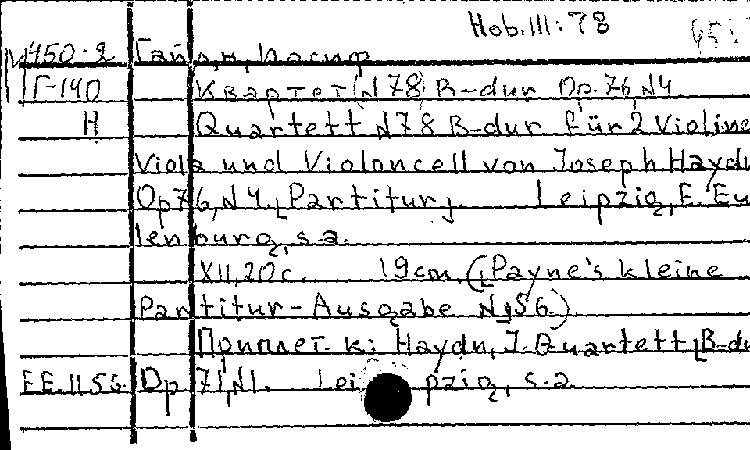 Hob.III:78
М450-2 Гайдн, Иосиф
Г-140 Квартет (N78) B-dur Op.76, N4
H Quartett N78 B-dur für 2 Violine
Viola und Violoncell von Joseph Haydn
Op76, N4. [Partitur] Leipzig, E. Eu
lenburg, s.a.
XII, 20c. 19cm. ([Payne's kleine
Partitur-Ausgabe N156)
Приплет. к: Haydn, J. Quartett [B-du
EE.1156 Op 71, N1. Leipzig, s.a.